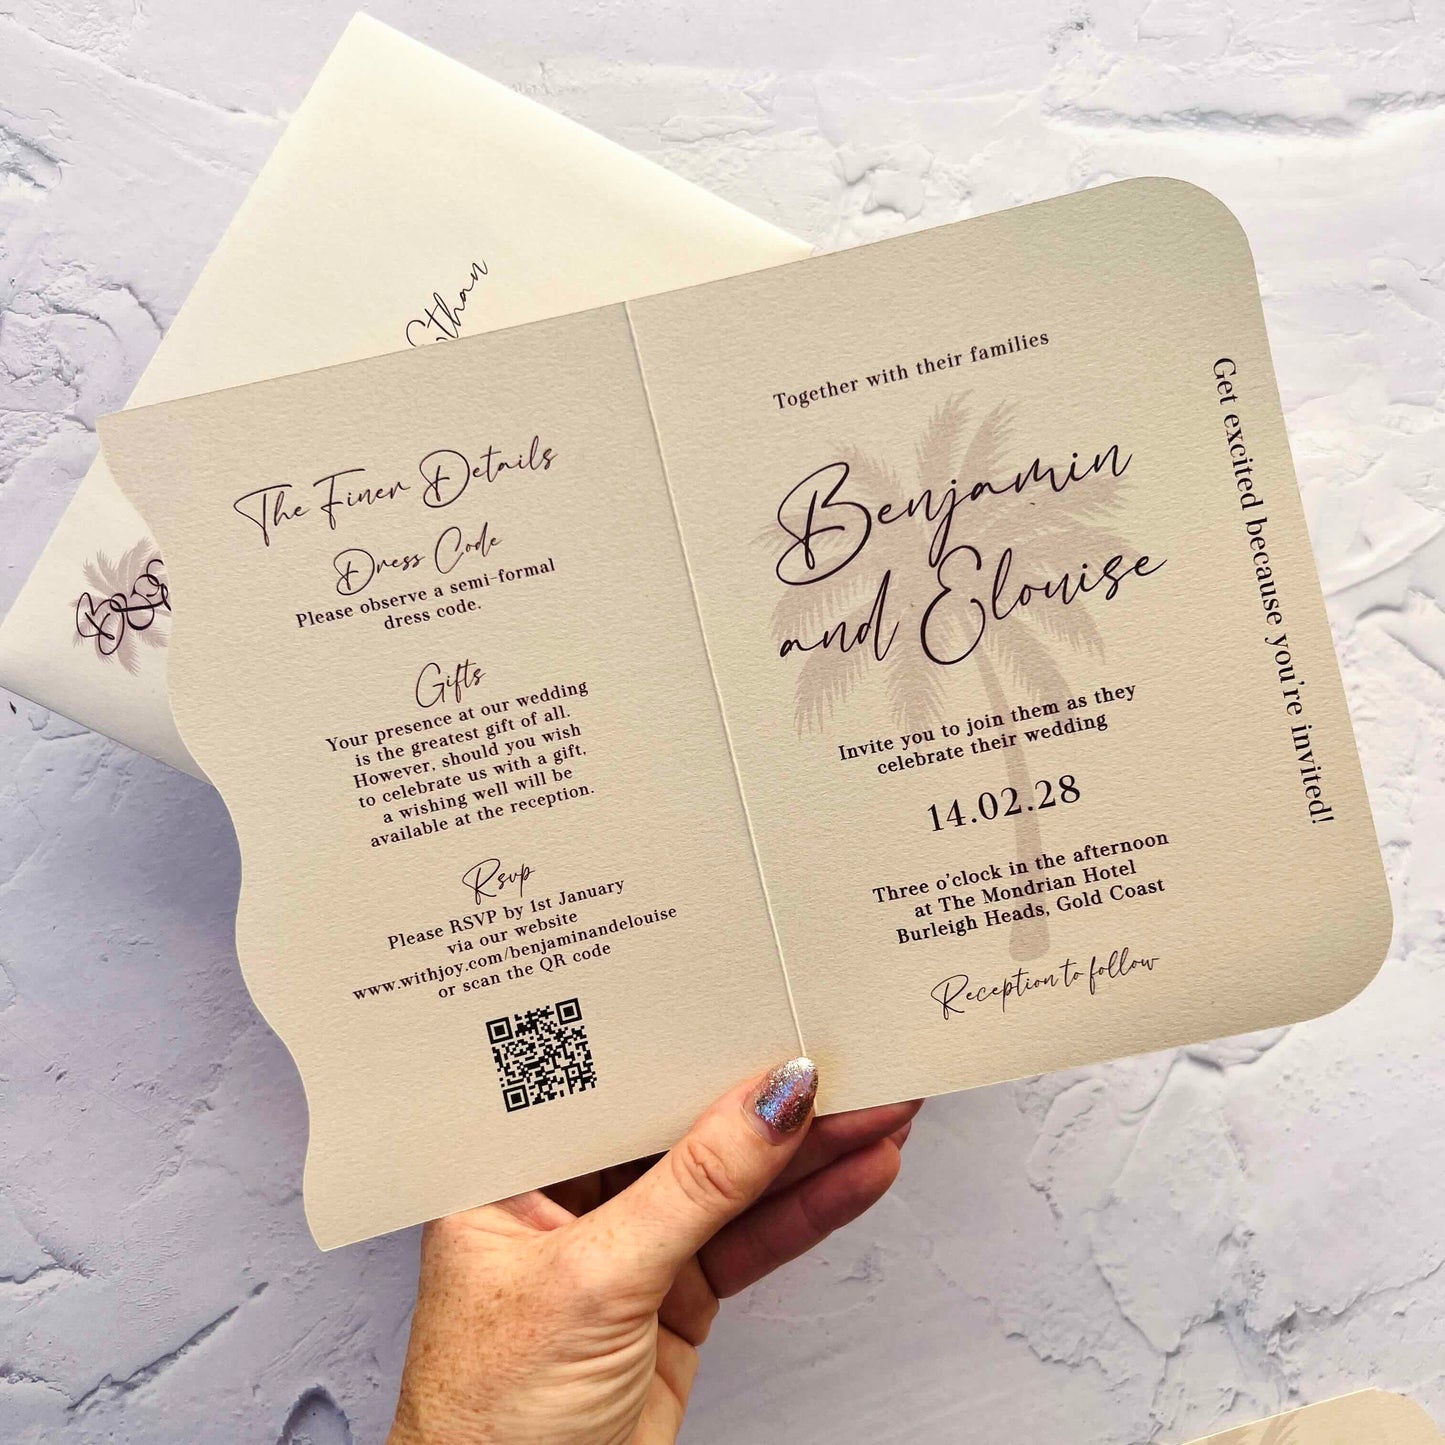 Ethan
B&E
The Finer Details
Dress Code
Please observe a semi-formal
dress code.
Gifts
Your presence at our wedding
is the greatest gift of all.
However, should you wish
to celebrate us with a gift,
a wishing well will be
available at the reception.
Rsvp
Please RSVP by 1st January
via our website
www.withjoy.com/benjaminandelouise
or scan the QR code
Together with their families
Benjamin
and Elouise
Invite you to join them as they
celebrate their wedding
14.02.28
Three o'clock in the afternoon
at The Mondrian Hotel
Burleigh Heads, Gold Coast
Reception to follow
Get excited because you're invited!